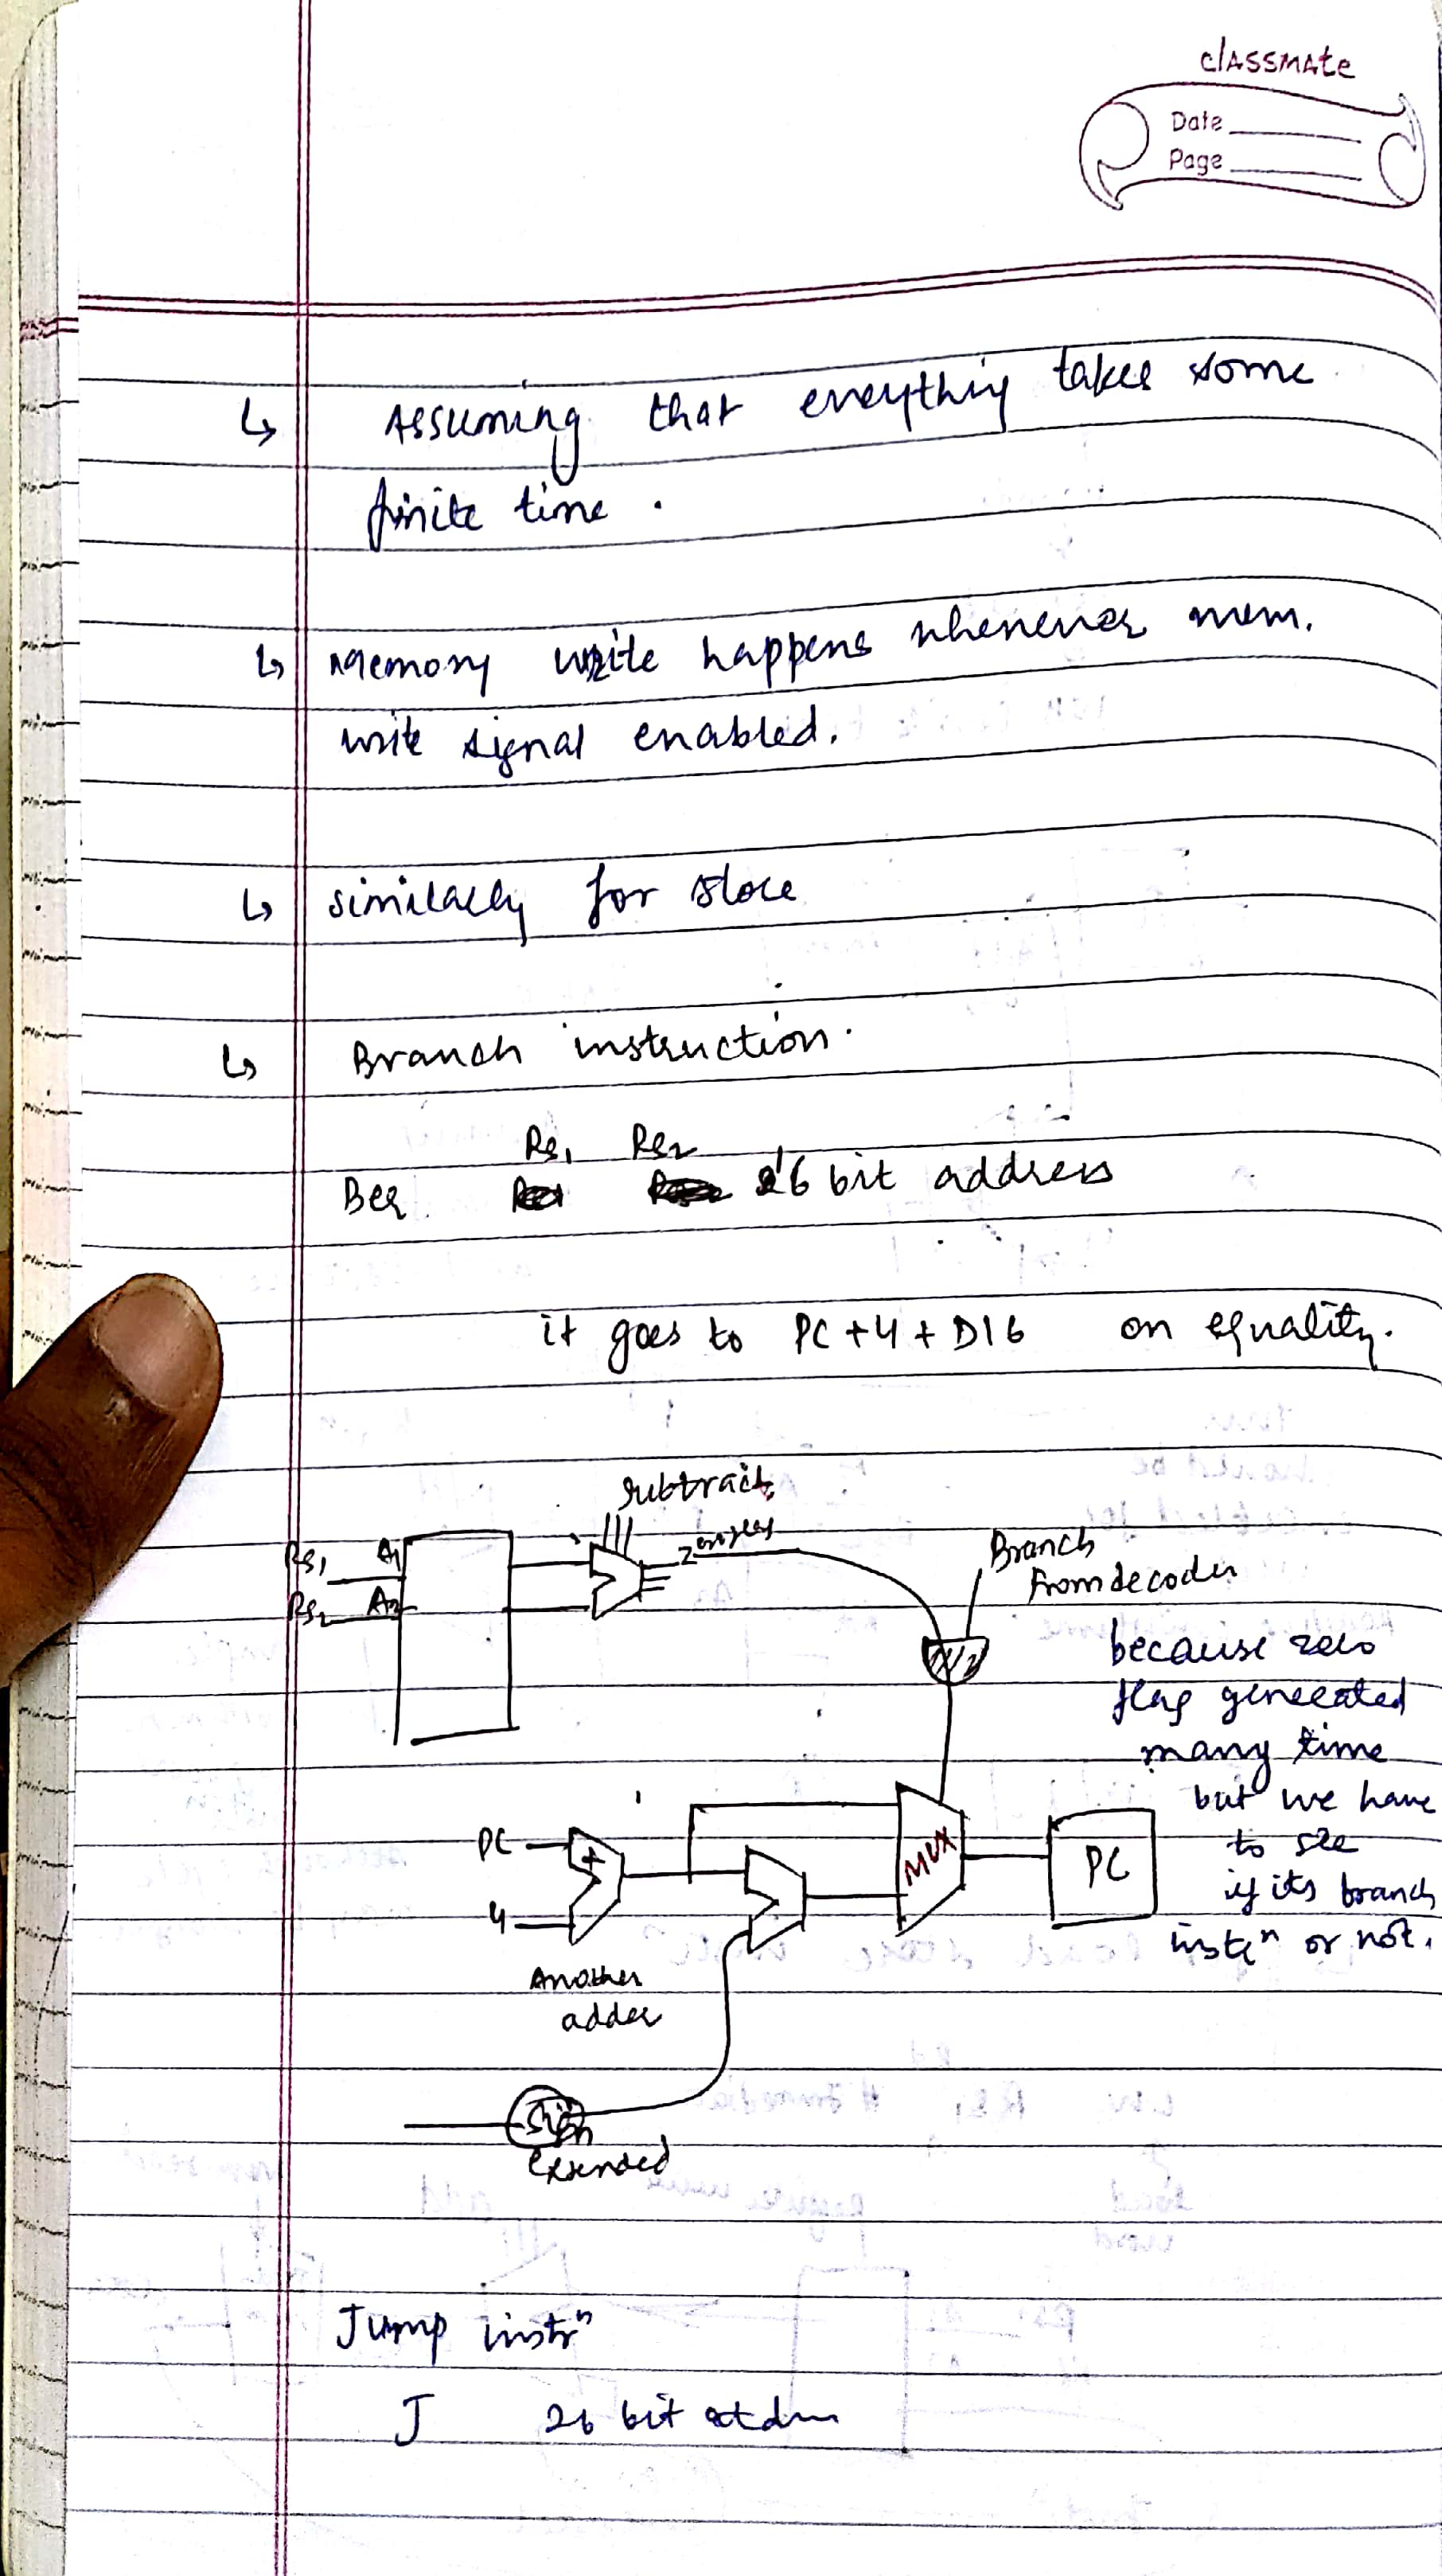 classmate
Date
Page
↳ Assuming that everything takes some
finite time.
↳ Memory write happens whenever mem.
write signal enabled.
↳ similarly for store
↳ Branch instruction.
Rs1 Rs2
Beq 16 bit address
it goes to PC+4+D16 on equality.
subtract
Rs1 A1
Rs2 A2
Branch
From decoder
because zero
flag generated
many time
but we have
to see
if its branch
instrⁿ or not.
PC
+
4
MUX
PC
Another
adder
Sign
Extended
Jump instrⁿ
J 26 bit